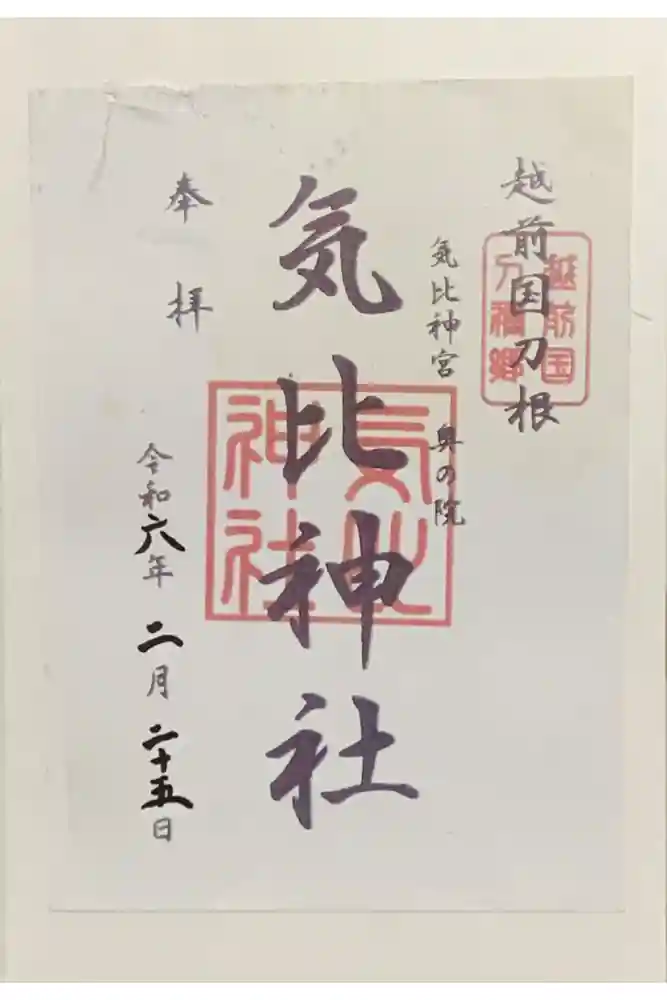 越前国刀根
越前国
刀禰郷
気比神宮 奥の院
気比神社
気比
神社
奉拝
令和六年 二月 二十五日